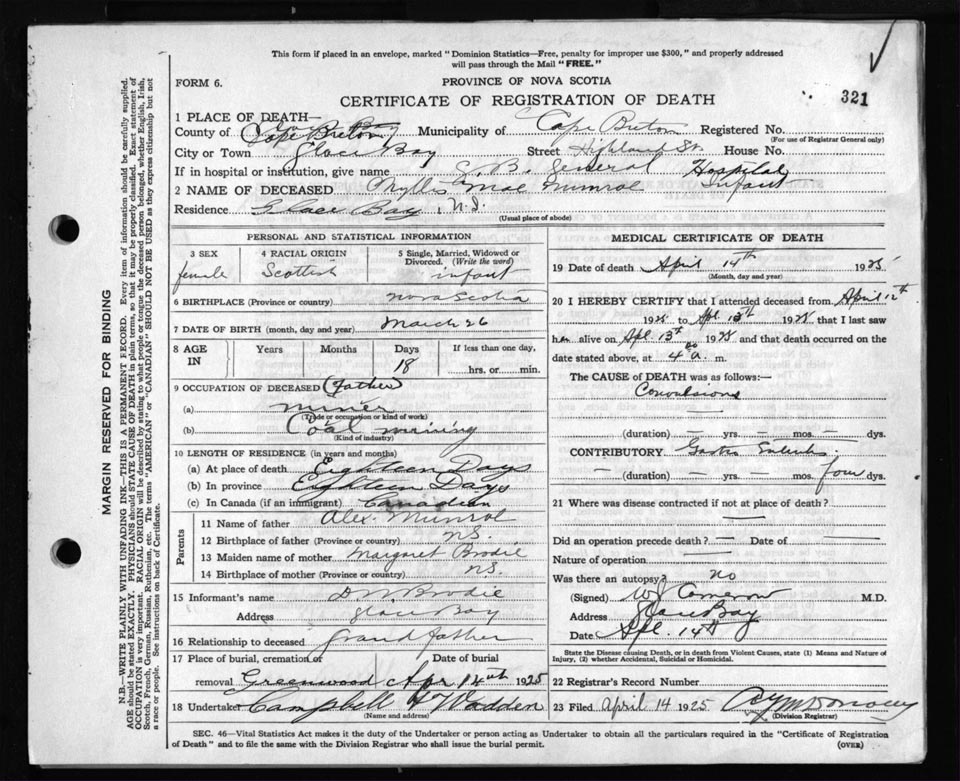 This form if placed in an envelope, marked "Dominion Statistics—Free, penalty for improper use $300," and properly addressed
will pass through the Mail "FREE."
FORM 6.
PROVINCE OF NOVA SCOTIA
321
CERTIFICATE OF REGISTRATION OF DEATH
1 PLACE OF DEATH—
County of Cape Breton Municipality of Cape Breton Registered No.
(For use of Registrar General only)
City or Town Glace Bay Street Highland St. House No.
If in hospital or institution, give name G. B. General Hospital
2 NAME OF DECEASED Phyllis Mae Munroe Infant
Residence Glace Bay, N.S.
(Usual place of abode)
PERSONAL AND STATISTICAL INFORMATION
3 SEX
female
4 RACIAL ORIGIN
Scottish
5 Single, Married, Widowed or
Divorced. (Write the word)
infant
6 BIRTHPLACE (Province or country) Nova Scotia
7 DATE OF BIRTH (month, day and year) March 26
8 AGE IN
Years
Months
Days
18
If less than one day,
hrs. or min.
9 OCCUPATION OF DECEASED (father)
(a) miner
(Trade or occupation or kind of work)
(b) Coal mining
(Kind of industry)
10 LENGTH OF RESIDENCE (in years and months)
(a) At place of death Eighteen Days
(b) In province Eighteen Days
(c) In Canada (if an immigrant) Canadian
Parents
11 Name of father Alex. Munroe
12 Birthplace of father (Province or country) N.S.
13 Maiden name of mother Margaret Brodie
14 Birthplace of mother (Province or country) N.S.
15 Informant's name Brodie
Address Glace Bay
16 Relationship to deceased Grand father
17 Place of burial, cremation or Date of burial
removal Greenwood Apr 14th 1925
18 Undertaker Campbell & Wadden
(Name and address)
MEDICAL CERTIFICATE OF DEATH
19 Date of death April 14th 1925
(Month, day and year)
20 I HEREBY CERTIFY that I attended deceased from April 12th
1925 to Apl. 13th 1925 that I last saw
her alive on Apl. 13th 1925 and that death occurred on the
date stated above, at 4 a. m.
The CAUSE of DEATH was as follows:—
Convulsions
(duration) — yrs. — mos. — dys.
CONTRIBUTORY Gastro Enteritis
(duration) — yrs. — mos. four dys.
21 Where was disease contracted if not at place of death?
—
Did an operation precede death? — Date of —
Nature of operation —
Was there an autopsy? no
(Signed) Cameron M.D.
Address Glace Bay
Date Apl. 14th
State the Disease causing Death, or in death from Violent Causes, state (1) Means and Nature of
Injury, (2) whether Accidental, Suicidal or Homicidal.
22 Registrar's Record Number
23 Filed April 14 1925
(Division Registrar)
SEC. 46—Vital Statistics Act makes it the duty of the Undertaker or person acting as Undertaker to obtain all the particulars required in the "Certificate of Registration
of Death" and to file the same with the Division Registrar who shall issue the burial permit.
(OVER)
MARGIN RESERVED FOR BINDING
N.B.—WRITE PLAINLY WITH UNFADING INK—THIS IS A PERMANENT RECORD. Every item of information should be carefully supplied.
AGE should be stated EXACTLY. PHYSICIANS should STATE CAUSE OF DEATH in plain terms, so that it may be properly classified. Exact statement of
OCCUPATION is very important. RACIAL ORIGIN will be described by stating to what people or tongue the deceased person belonged, whether English, Irish,
Scotch, French, German, Russian, Ruthenian, etc. The terms "AMERICAN" or "CANADIAN" SHOULD NOT BE USED as they express citizenship but not
a race or people. See instructions on back of Certificate.